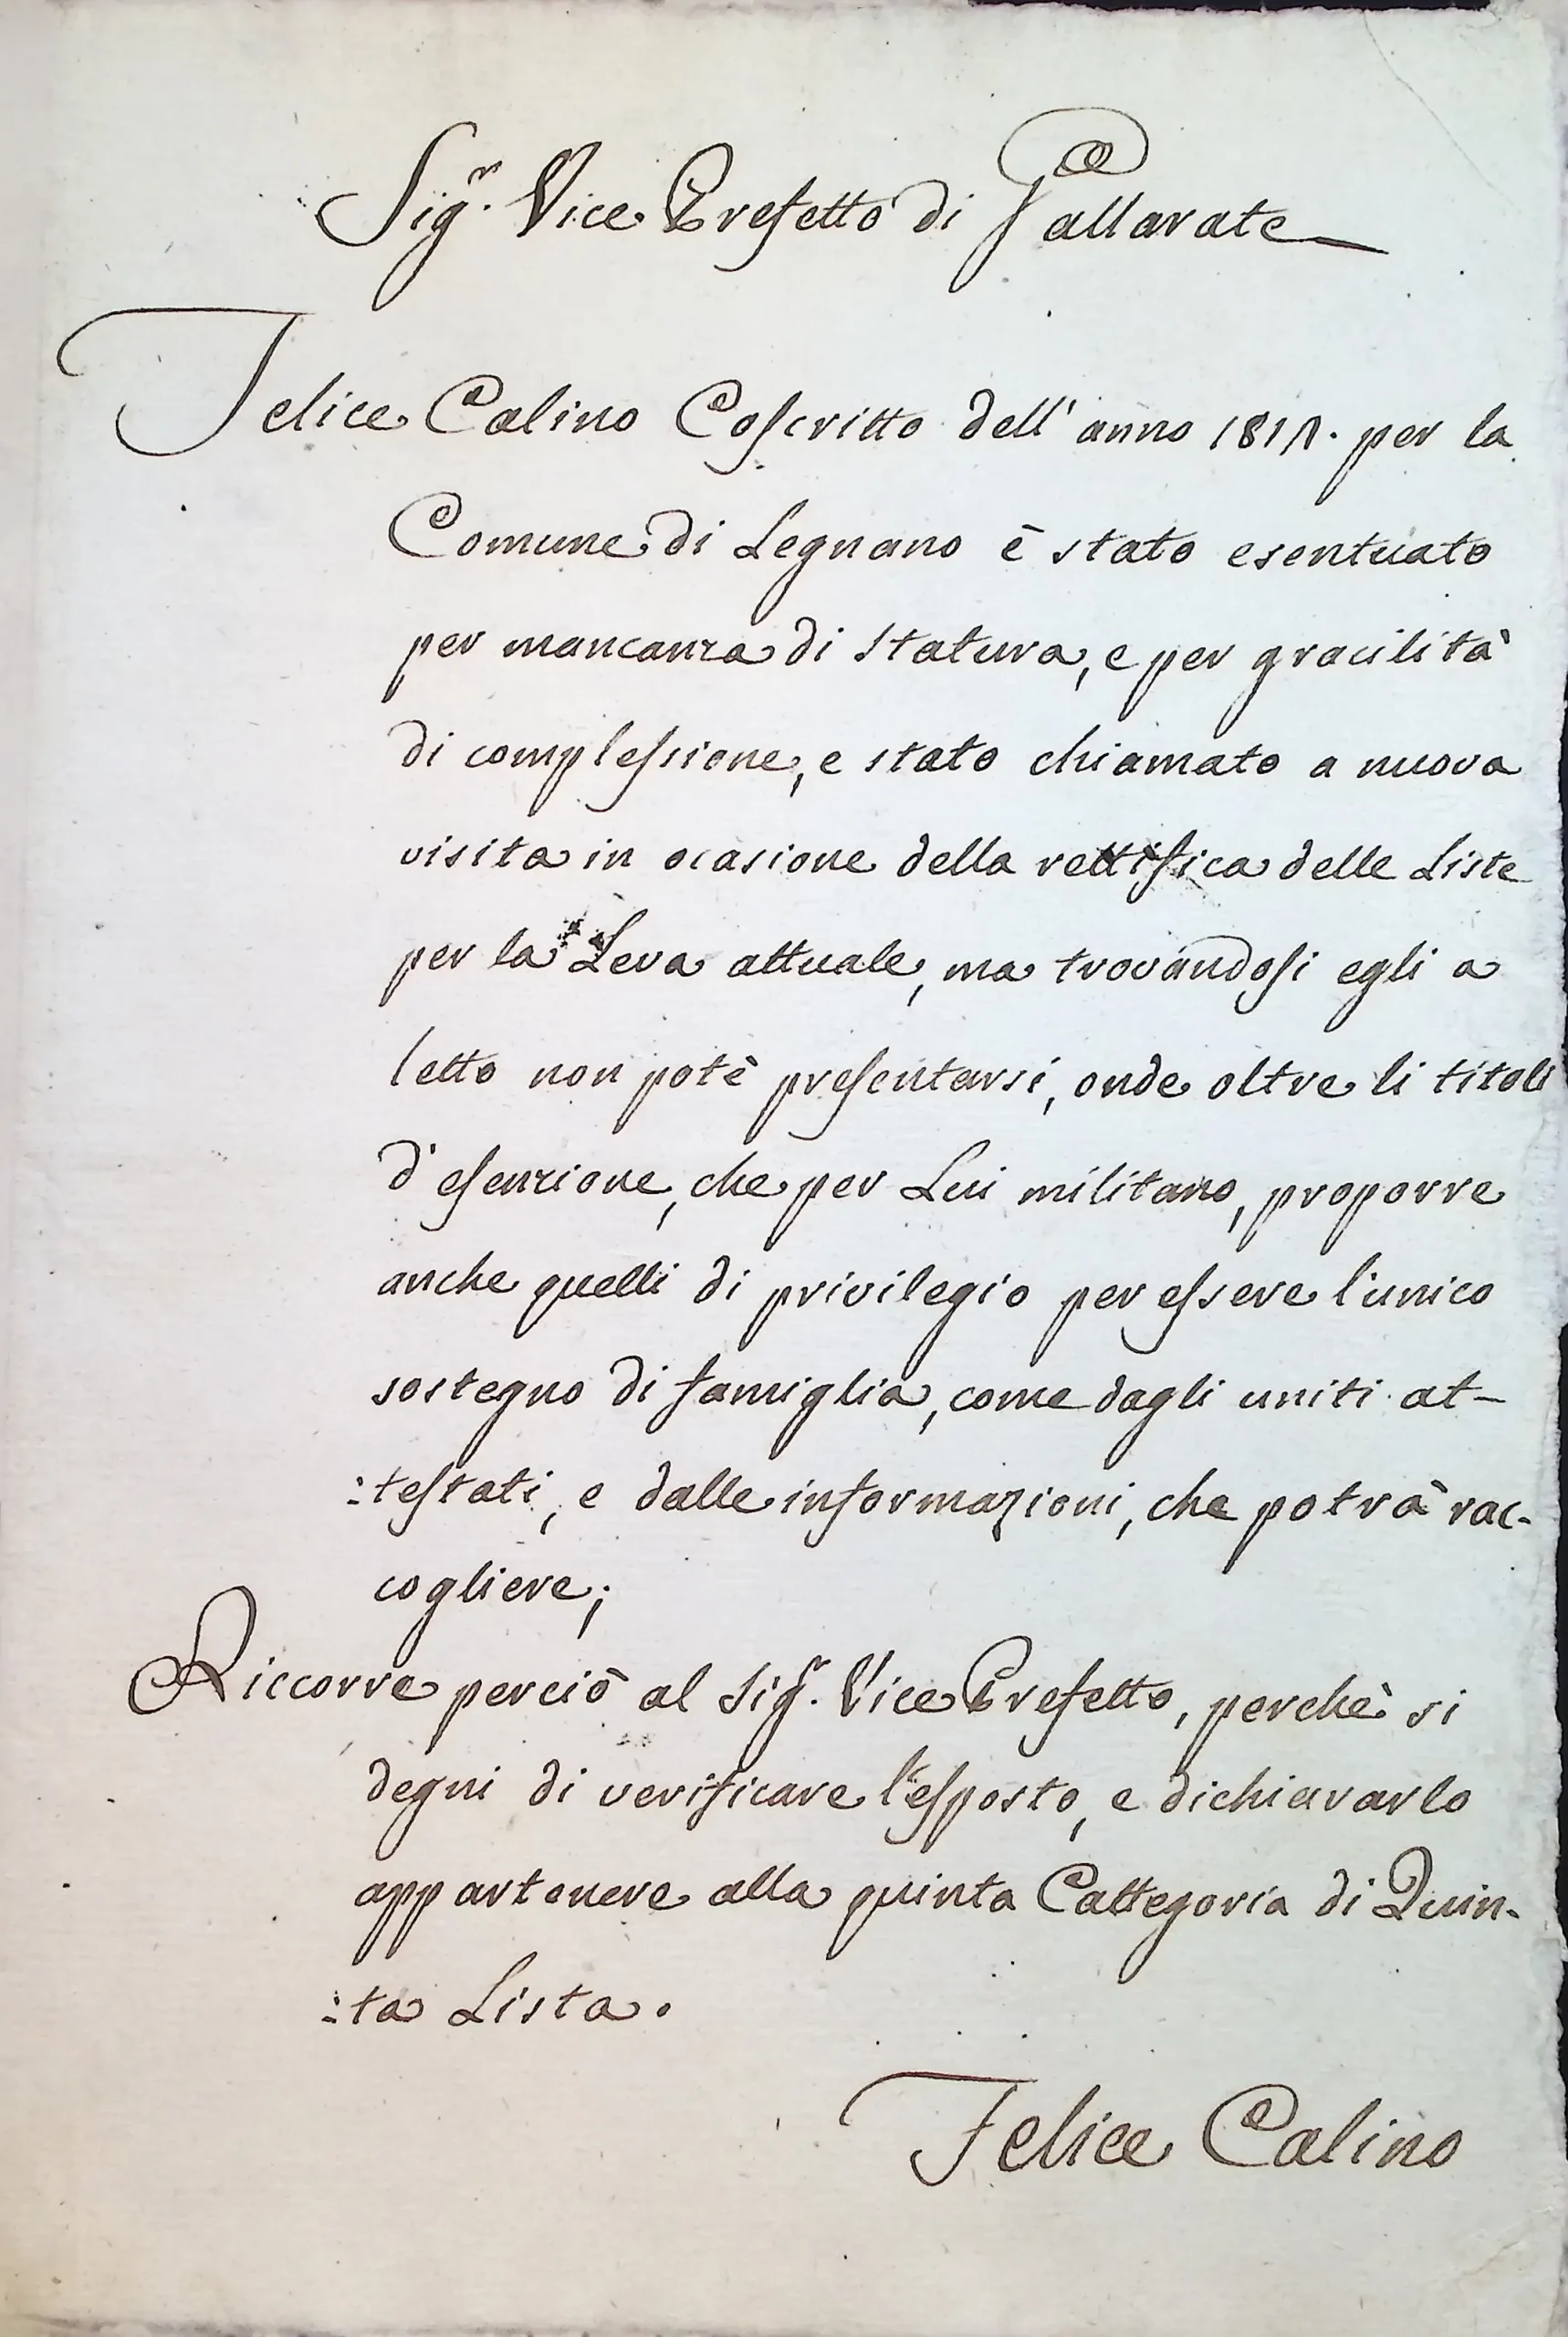 Sig.r Vice Prefetto di Gallarate
Felice Calino Coscritto dell'anno 1811. per la
Comune di Legnano è stato esentuato
per mancanza di statura, e per gracilità
di complessione, e stato chiamato a nuova
visita in ocasione della rettifica delle Liste
per la Leva attuale, ma trovandosi egli a
letto non potè presentarsi, onde oltre li titoli
d'esenzione, che per Lui militano, proporre
anche quelli di privilegio per essere l'unico
sostegno di famiglia, come dagli uniti at-
:testati, e dalle informazioni, che potrà rac-
cogliere;
Riccorre perciò al Sig.r Vice Prefetto, perchè si
degni di verificare l'esposto, e dichiararlo
appartenere alla quinta Cattegoria di Quin-
:ta Lista.
Felice Calino